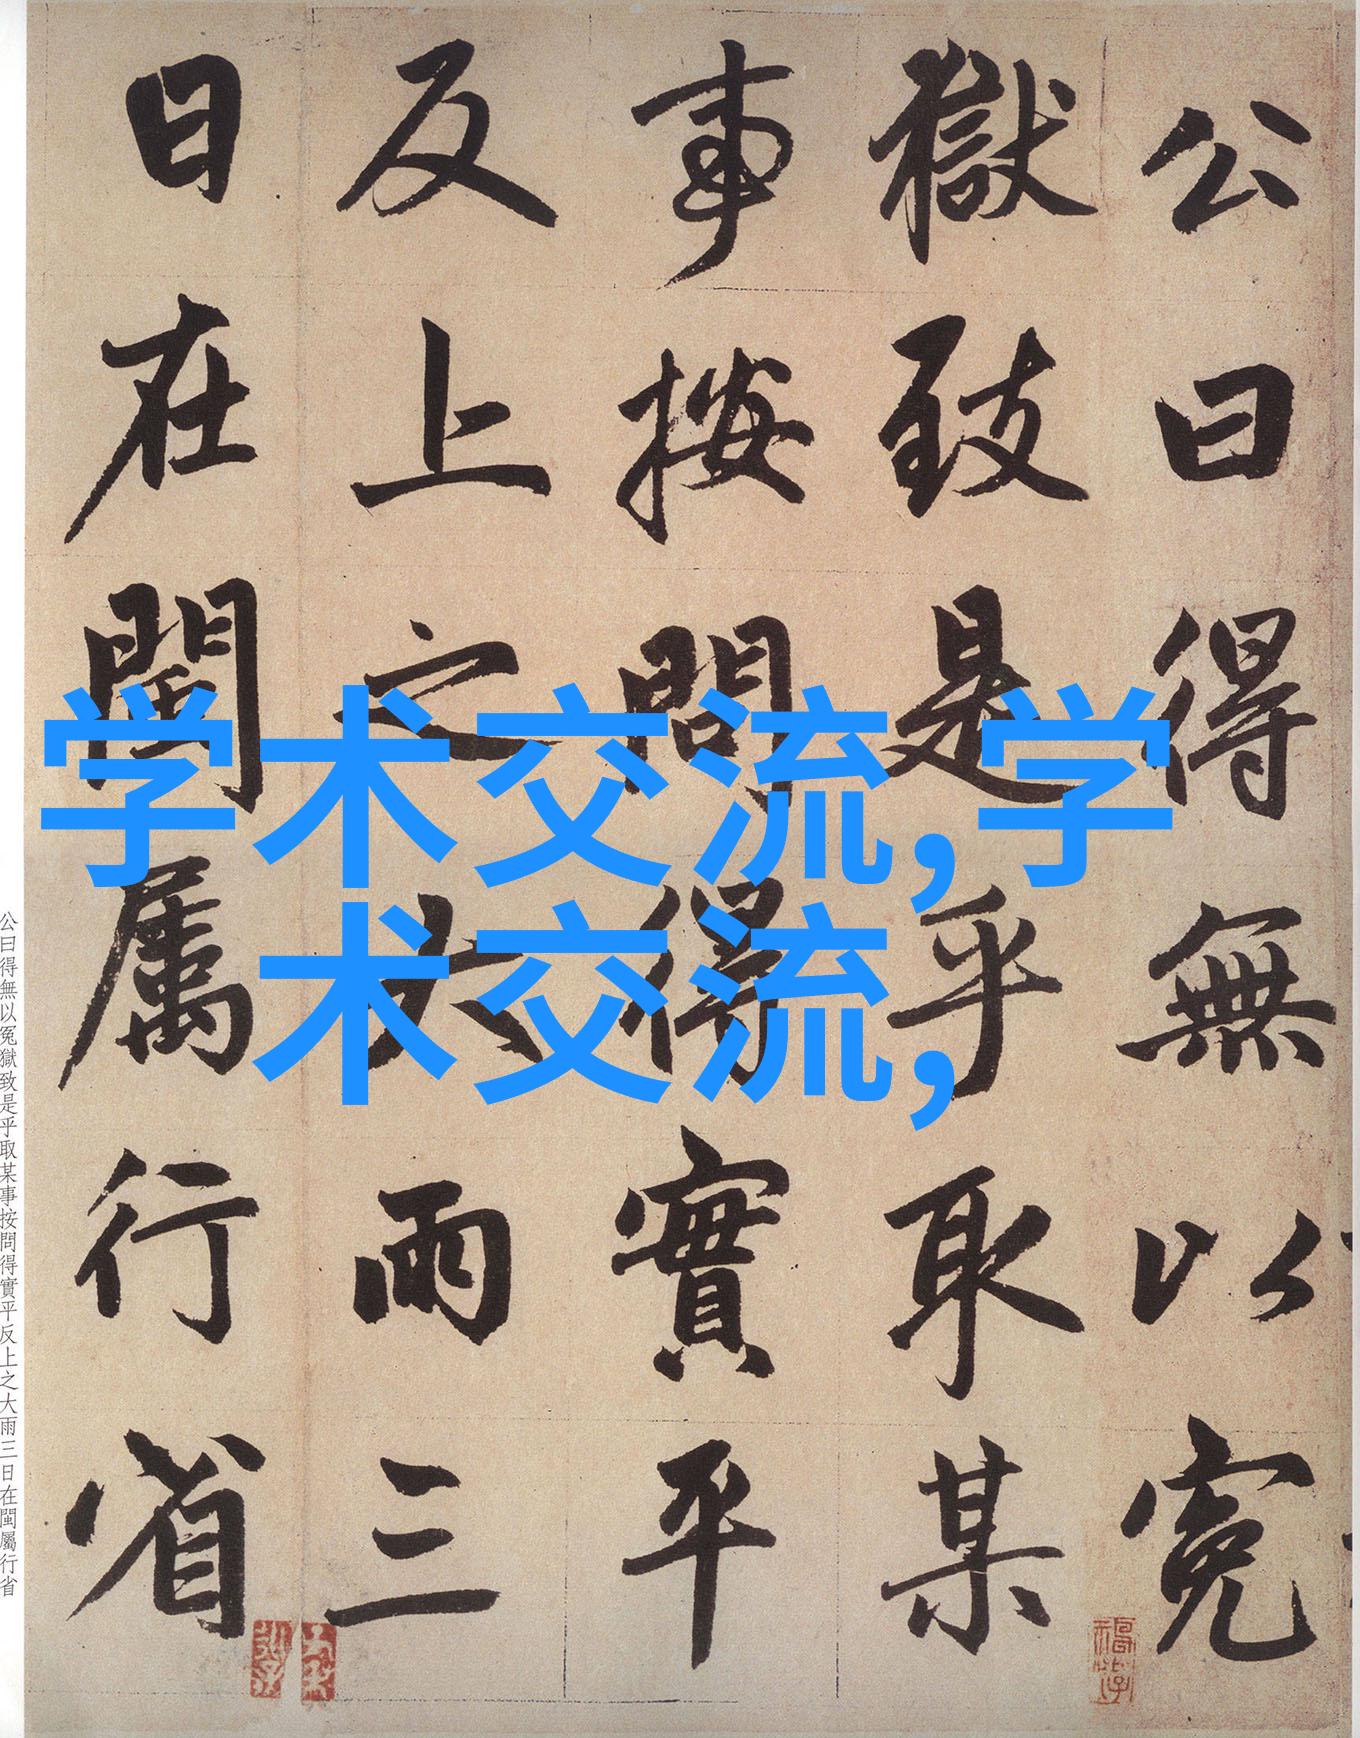 公曰得無以冤
獄致是乎取某
事按問得實平
反上之大雨三
日在閩屬行省
公曰得無以冤獄致是乎取某事按問得實平反上之大雨三日在閩屬行省
学术交流,学
术交流,